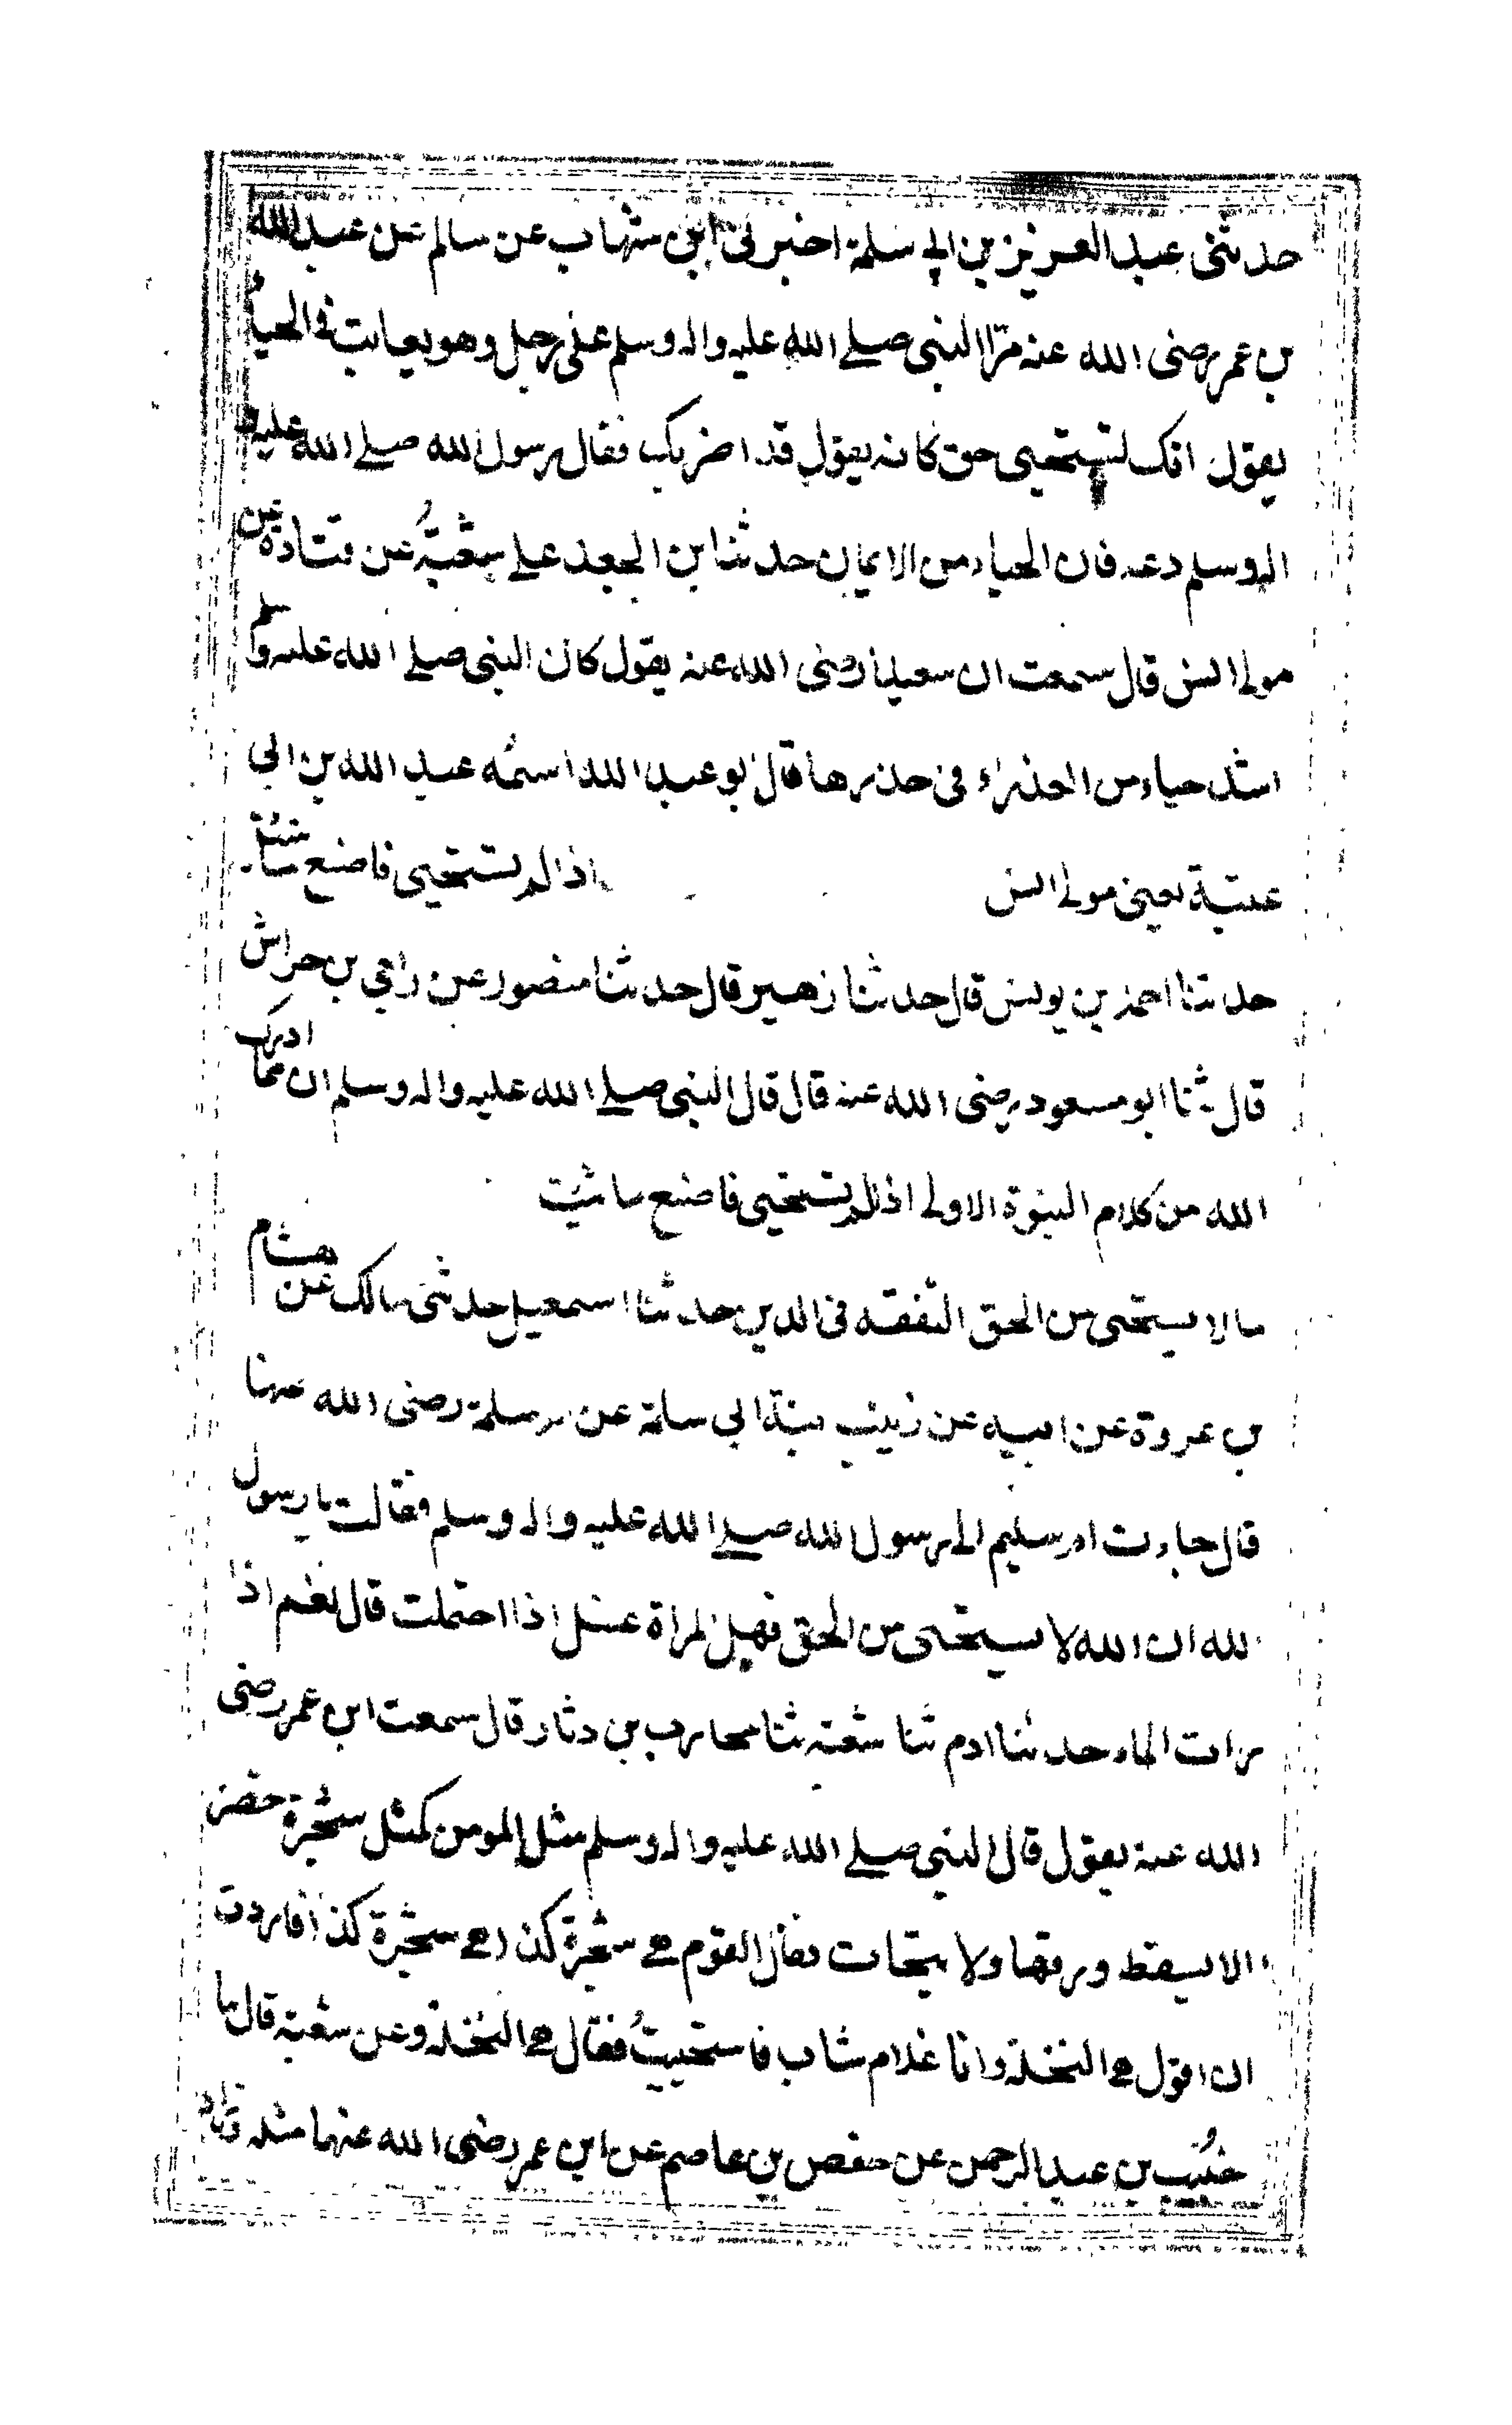 حدثنى عبد العزيز بن ابى سلمة اخبرنى ابن شهاب عن سالم عن عبد الله
بن عمر رضى الله عنه مرّ النبى صلے الله عليه واله وسلم على رجل وهو يعاتب فى الحياء
يقول انك لتستحيى حتى كانه يقول قد اضر بك فقال رسول الله صلے الله عليه
واله وسلم دعه فان الحياء من الايمان حدثنا ابن الجعد على شعبةُ عن قتادة عن
مولے انس قال سمعت ان سعيدا رضى الله عنه يقول كان النبى صلے الله عليه وسلم
اشد حياء من العذراء فى خدرها قال ابو عبد الله اسمُه عبد الله بن ابى
عتبة يعنى مولے انس اذا لم تستحيى فاصنع ما شئت
حدثنا احمد بن يونس قال حدثنا زهير قال حدثنا منصور عن راعي بن حراش
قال ثنا ابو مسعود رضى الله عنه قال قال النبى صلے الله عليه واله وسلم ان مما ادرك
الله من كلام النبوة الاولے اذا لم تستحيى فاصنع ما شئت
مالا يستحى من الحق التفقه فى الدين حدثنا اسمعيل حدثنى مالك عن هشام
بن عروة عن ابيه عن زينب بنة ابي سلمة عن ام سلمة رضى الله عنها
قال جاءت ام سليم الى رسول الله صلے الله عليه واله وسلم فقالت يا رسول
الله ان الله لا يستحى من الحق فهل المراة غسل اذا احتملت قال نعم اذا
رات الماء حدثنا ادم ثنا شعبة ثنا محارب بن دثار قال سمعت ابن عمر رضى
الله عنه يقول قال النبى صلے الله عليه واله وسلم مثل المومن كمثل شجرة خضر
الا يسقط ورقها ولا يتحات فقال القوم هے شجرة كذا هے شجرة كذا فاردت
ان اقول هے النخلة وانا غلام شاب فاستحييتُ فقال هے النخلة وعن شعبة قال نا
خُبيب بن عبد الرحمن عن حفص بن عاصم عن ابن عمر رضى الله عنهما مثله وزاد